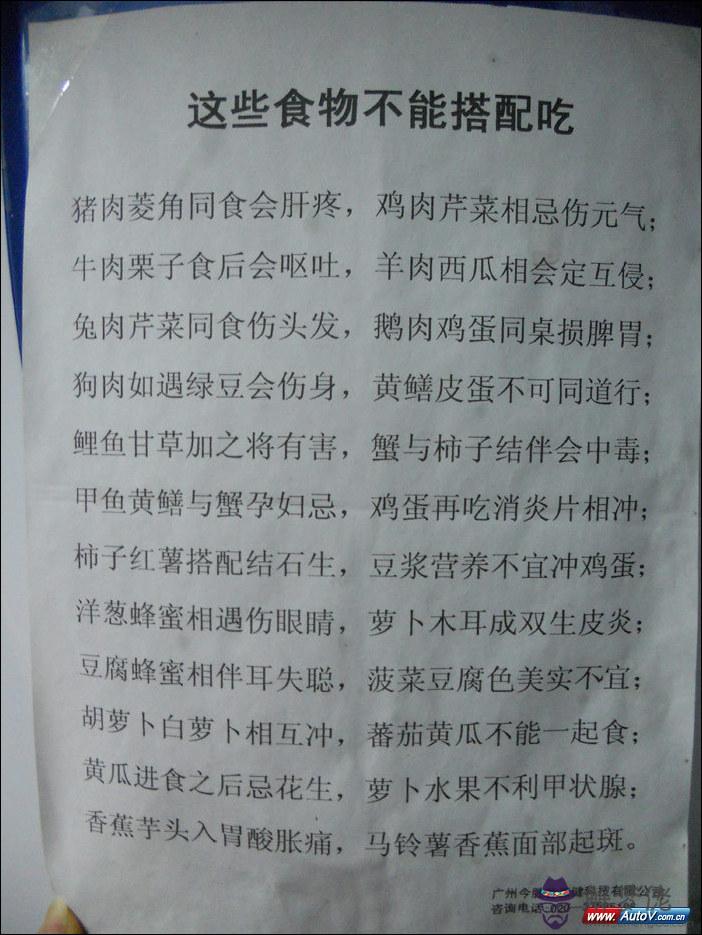 这些食物不能搭配吃
猪肉菱角同食会肝疼，鸡肉芹菜相忌伤元气；
牛肉栗子食后会呕吐，羊肉西瓜相会定互侵；
兔肉芹菜同食伤头发，鹅肉鸡蛋同桌损脾胃；
狗肉如遇绿豆会伤身，黄鳝皮蛋不可同道行；
鲤鱼甘草加之将有害，蟹与柿子结伴会中毒；
甲鱼黄鳝与蟹孕妇忌，鸡蛋再吃消炎片相冲；
柿子红薯搭配结石生，豆浆营养不宜冲鸡蛋；
洋葱蜂蜜相遇伤眼睛，萝卜木耳成双生皮炎；
豆腐蜂蜜相伴耳失聪，菠菜豆腐色美实不宜；
胡萝卜白萝卜相互冲，蕃茄黄瓜不能一起食；
黄瓜进食之后忌花生，萝卜水果不利甲状腺；
香蕉芋头入胃酸胀痛，马铃薯香蕉面部起斑。
广州今 健科技有限公司
咨询电话 020
www.AutoV.com.cn